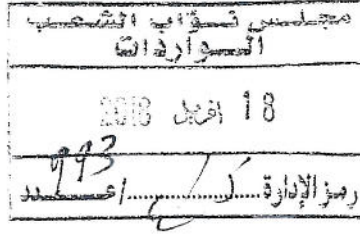 مجلس نواب الشعب
الواردات
18 افريل 2018
رمز الإدارة ... / عدد